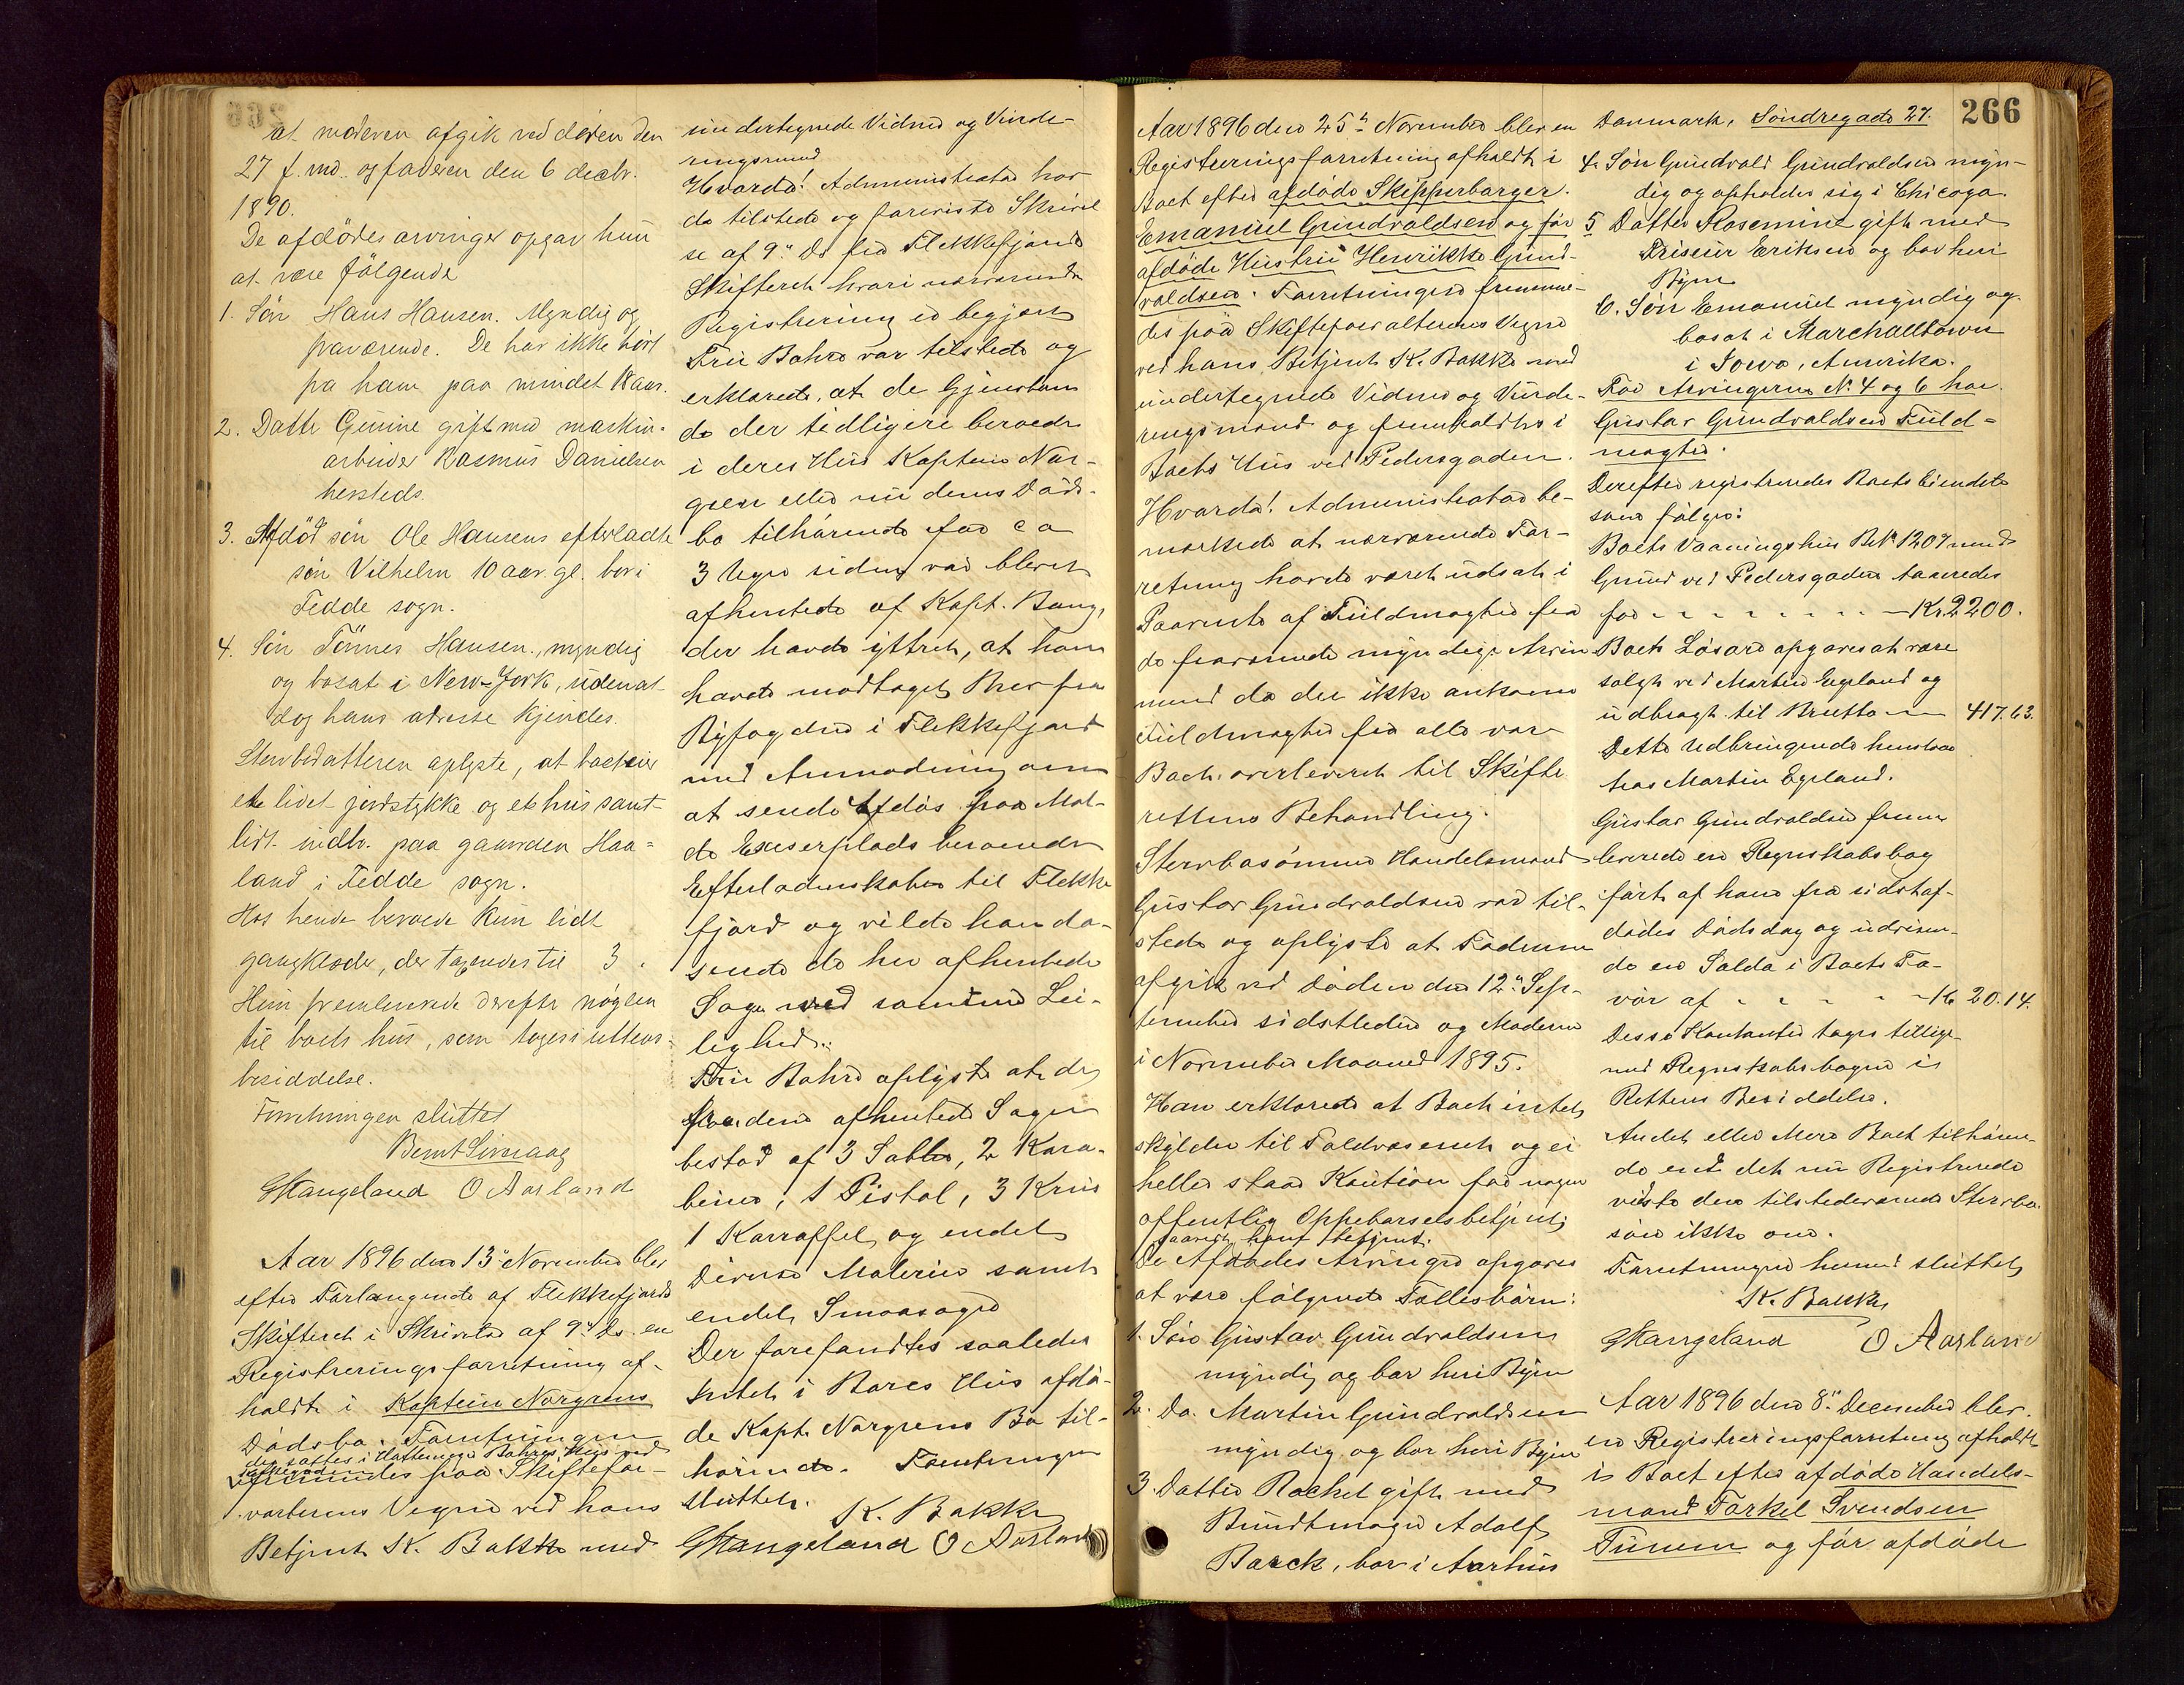 at moderen afgik ved döden den
27 f. md. og faderen den 6 decbr.
1890.
De afdödes arvinger opgav hun
at være fölgende
1. Sön Hans Hansen. Myndig og
fraværende. De har ikke hört
fra ham paa mindst 18 aar.
2. Datter Gurine gift med maskin-
arbeider Rasmus Danielsen
hersteds.
3. Afdöd sön Ole Hansens efterladte
sön Vilhelm 10 aar gl. bor i
Fedde sogn.
4. Sön Tönnes Hansen, myndig
og bosat i New-York, uden at
dog hans adresse kjendes.
Stervbodatteren oplyste, at boet eier
et lidet jordstykke og et hus samt
lidt indbo paa gaarden Haa=
land i Fedde sogn.
Hos hende beroede kun lidt
gangklæder, der taxeredes til 3.
Hun fremleverede derefter nöglen
til boets hus, som toges i rettens
besiddelse.
Forretningen sluttet
Bernt Simaag
GHangeland O Aarland
Aar 1896 den 13de November blev
efter Forlangende af Flekkefjords
Skifteret i Skrivelse af 9de Ds. en
Registreringsforretning af-
holdt i Kaptein Norgrens
Dödsbo. Forretningen
der sattes i Hattemager Bahrs Hus ved
fremmedes paa Skiftefor-
valterens Vegne ved hans
Betjent K. Bakke med
undertegnede Vidner og Vurde-
ringsmænd
Hvorda! Administrator var
da tilstede og foreviste Skrivel
se af 9de Ds fra Flekkefjords
Skifteret hvori nærværende
Registrering er begjært
Fru Bahrs var tilstede og
erklærede, at de Gjenstan
de der tidligere beroede
i deres Hus Kaptein Nor-
gren eller nu dennes Döds-
bo tilhörende for ca
3 Uger siden var blevet
afhentede af Kapt. Bang,
der havde yttret, at han
havde modtaget Brev fra
Byfogden i Flekkefjord
med Anmodning om
at sende Afdös paa Mal-
de Exerserplads beroende
Efterladenskaber til Flekke
fjord og vilde han da-
sende de her afhentede
Sager med samme Lei-
lighed.
Fru Bahrs oplyste at de
forudena afhentede Sager
bestod af 3 Sabler, 2 Kara-
biner, 1 Pistol, 3 Krus
1 Karraffel, og endel
Diverse Malerier samt
endel Smaasager
Der forefandtes saaledes
Intet i Bahrs Hus afdö-
de Kapt. Norgrens Bo til-
hörende. Forretningen
sluttet.
K. Bakke
GHangeland O Aarland
266
Aar 1896 den 25de November blev en
Registreringsforretning afholdt i
Boet efter afdöde Skipperborger
Emanuel Gundvaldsen og för
afdöde Hustru Henrikke Gund-
valdsen. Forretningen fremme-
des paa Skifteforvalterens Vegne
ved hans Betjent K. Bakke med
undertegnede Vidner og Vurde-
ringsmænd og fremholdtes i
Boets Hus ved Pedersgaden.
Hvorda! Administrator be-
mærkede at nærværende For-
retning havde været udsat i
Paavente af Fuldmagter fra
de fraværende myndige Arvin
men da der ikke ankom
Fuldmagter fra alle var
Boet overleveret til Skifte
rettens Behandling.
Stervbosönnen Handelsmand
Gustav Gundvaldsen var til-
stede og oplyste at Faderen
afgik ved Döden den 12te Sep-
tember sidstleden og Moderen
i November Maaned 1895.
Han erklærede at Boet intet
skylder til Toldvæsenet og ei
heller staar Kaution for nogen
offentlig Oppebørselsbetjent
De Afdödes Arvinger opgaves
at være fölgende Fællesbörn:
1. Sön Gustav Gundvaldsen
myndig og bor heri Byen
2. Do. Martin Gundvaldsen
myndig og bor heri Byen
3. Datter Rachel gift med
Bundtmager Adolf
Barck, bor i Aarhus
Danmark, Söndregade 27.
4. Sön Gundvald Gundvaldsen myn-
dig og opholder sig i Chicago
5 Datter Rosemine gift med
Friseur Eriksen og bor heri
Byen
6. Sön Emanuel myndig og
bosat i Marchalltown
i Iowa, Amerika.
For Arvingerne No. 4 og 6 har
Gustav Gundvaldsen Fuld=
magter.
Derefter registreredes Boets Eiendele
som fölger:
Boets Vaaningshus B No 1207 med
Grund ved Pedersgaden taxeredes
for - - - - - - - Kr. 2200.
Boets Lösøre opgaves at være
solgt ved Martin Egeland og
udbragt til Brutto — 417.63.
Dette Udbringende henstaar
hos Martin Egeland.
Gustav Gundvaldsen frem
leverede en Regnskabsbog
fört af ham fra sidstaf-
dödes Dödsdag og udvisen-
de en Saldo i Boets Fa-
vör af - - - - - Kr 20.14.
Disse Kontanter toges tillige-
med Regnskabsbogen i
Rettens Besiddelse.
Andet eller Mere Boet tilhören-
de end det nu Registrerede
vidste den tilstedeværende Stervbo-
sön ikke om.
Forretningen hermed sluttet
K. Bakke
GHangeland O Aarland
Aar 1896 den 8de December blev
en Registreringsforretning afholdt
i Boet efter afdöde Handels-
mand Torkel Svendsen
Tunem og för afdöde